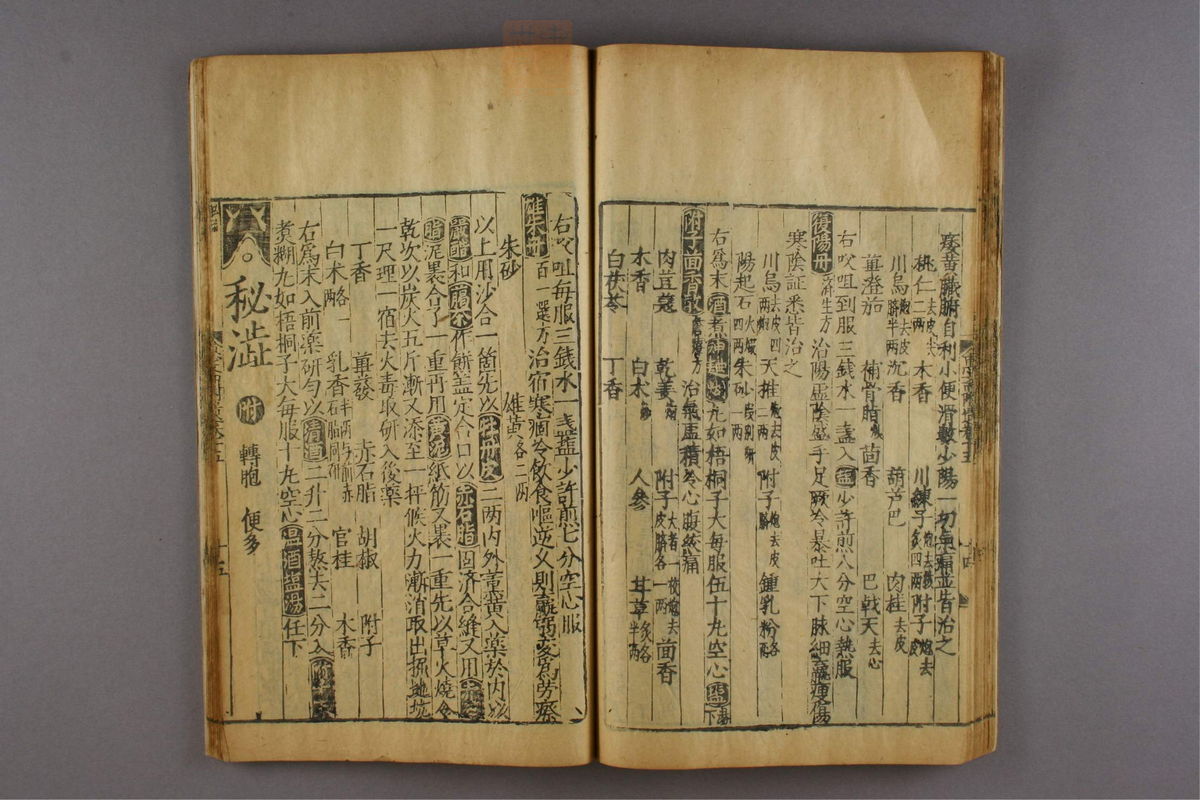 痿黃臟腑自利小便滑數少陽一切無痛並皆治之
桃仁去皮尖二兩 木香 川練子炮去核炙四兩 附子炮去
川烏炮去皮臍半兩 沉香 葫芦巴 肉桂去皮
蓽澄茄 補骨脂 茴香 巴戟天去心
右㕮咀到服三錢水一盞入塩少許煎八分空心熱服
復陽丹 濟生方 治陽虛陰盛手足厥冷暴吐大下脉細
寒陰証悉皆治之
川烏去皮四兩 天雄炮去皮二兩 附子炮去皮臍 鍾乳粉各兩
陽起石火煅四兩 朱砂
右爲末酒煮神麯糊丸如梧桐子大每服伍十丸空心塩湯下
附子茴香散 治無虛積冷心腹㽲痛
肉荳蔻 乾姜 附子大者一枚炮去皮臍各一兩 茴香
木香 白朮 人參 甘草炙各半兩
白茯苓 丁香
右㕮咀每服三錢水一盞塩少許煎七分空心服
朱丹 百一選方 治宿寒痼冷飲食嘔逆又則羸弱變爲勞瘵
朱砂 雄黃各二兩
以上用沙合一箇先以牡荊皮二兩內外薰黃入藥於內以
釅醋和作餅盖定合口以赤石脂固濟合縫又用
脂泥裹合了一重再用黃泥紙筋又裹一重先以草火燒令
乾次以炭火五斤漸又添至一秤候火力漸消取出掘地坑
一尺理一宿去火毒取研入後藥
丁香 蓽茇 赤石脂 胡椒 附子
白朮各一兩 乳香 官桂 木香
右爲末入前藥研勻以清酒二升二分熬去二分入
煮糊丸如梧桐子大每服十丸空心溫酒塩湯任下
秘澁 附 轉胞 便多
十五